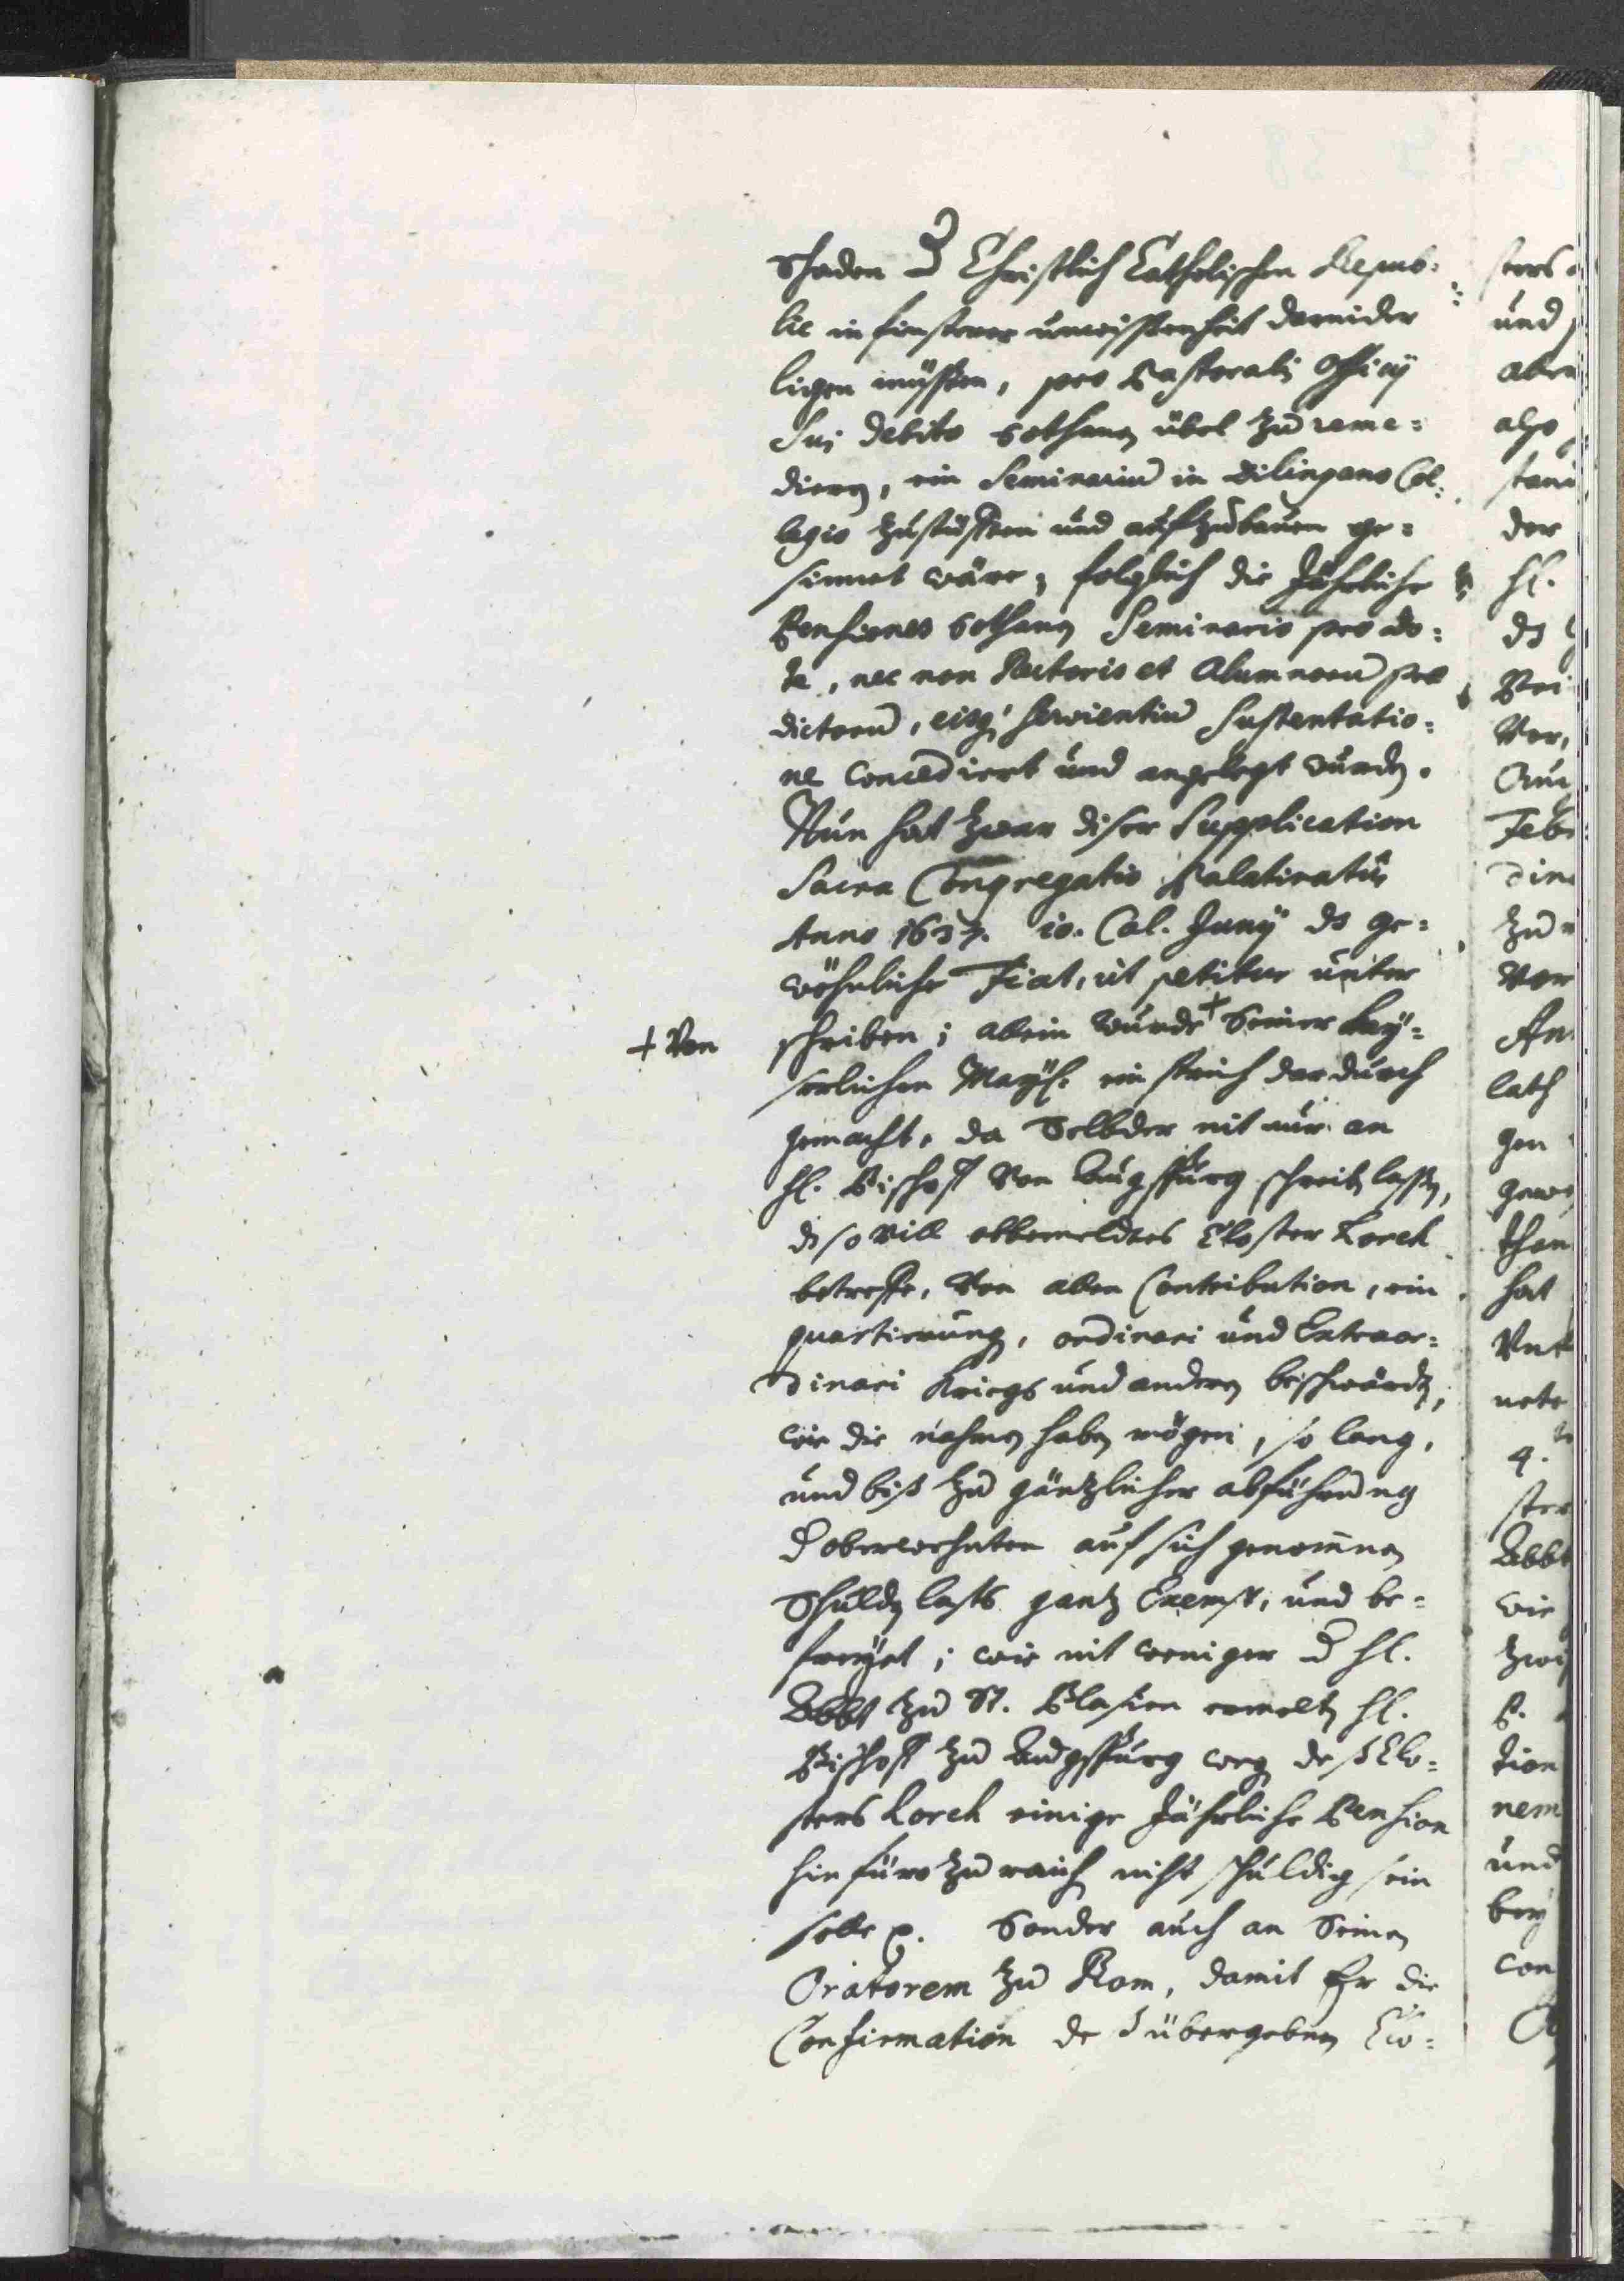 Schaden d Christlich Catholischen Repub=
lic in finsterer unwissenheit darnider
ligen müssten, pro Pastoralis Officij
Sui debito sothanen übel zu reme=
dieren, ein Seminariu in Dilingano Col=
legio zustüfften und aufzubauen ge=
sinnet wäre, folglich die Jährliche
Pensiones sothanen Seminario pro do=
te, nec non Rectoris et Alumnoru prae
dictoru, eisq servientiu sustentatio=
ne concediert und angelegt wurden.
Nun hat zwar diser Supplication
Sacra Congregatio Palatinatus
Anno 1637. 10. Cal. Junij ds ge=
wöhnliche Fiat, ut petitur unter
schriben; allein wurde + Seiner Kay=
+ Von
serlichen Mayst. ein strich dardurch
gemacht, da Selbder nit nur an
hl. Bischoff Von Augspurg schreiben lassen,
ds so vill obbemeldtes Closter Lorch
betreffe, Von allen Contribution, ein
quartierung, ordinari und Extraor=
dinari Kriegs und anderen beschwärden,
wie die nahmen haben mögen, so lang,
und biß zu gäntzlicher abführung
d oberwehnten auf sich genomnen
Schulden lasts gantz Exempt, und be=
freyet; wie nit weniger d hl.
Abbt zu St. Blasien ermelten hl.
Bischoff zu Augspurg wegen deß Clo=
sters Lorch einige Jährliche Pension
hinfüro zu raichen nicht schuldig sein
solle p. Sonder auch an Seinen
Oratorem zu Rom, damit Er die
Confirmation deß übergebnen Clo=
sters
und
aber
also
der
hl.
ds
Ver,
zu
Vor
gen
than
hat
ster
Abbt
wie
tion
nem
und
bey
con